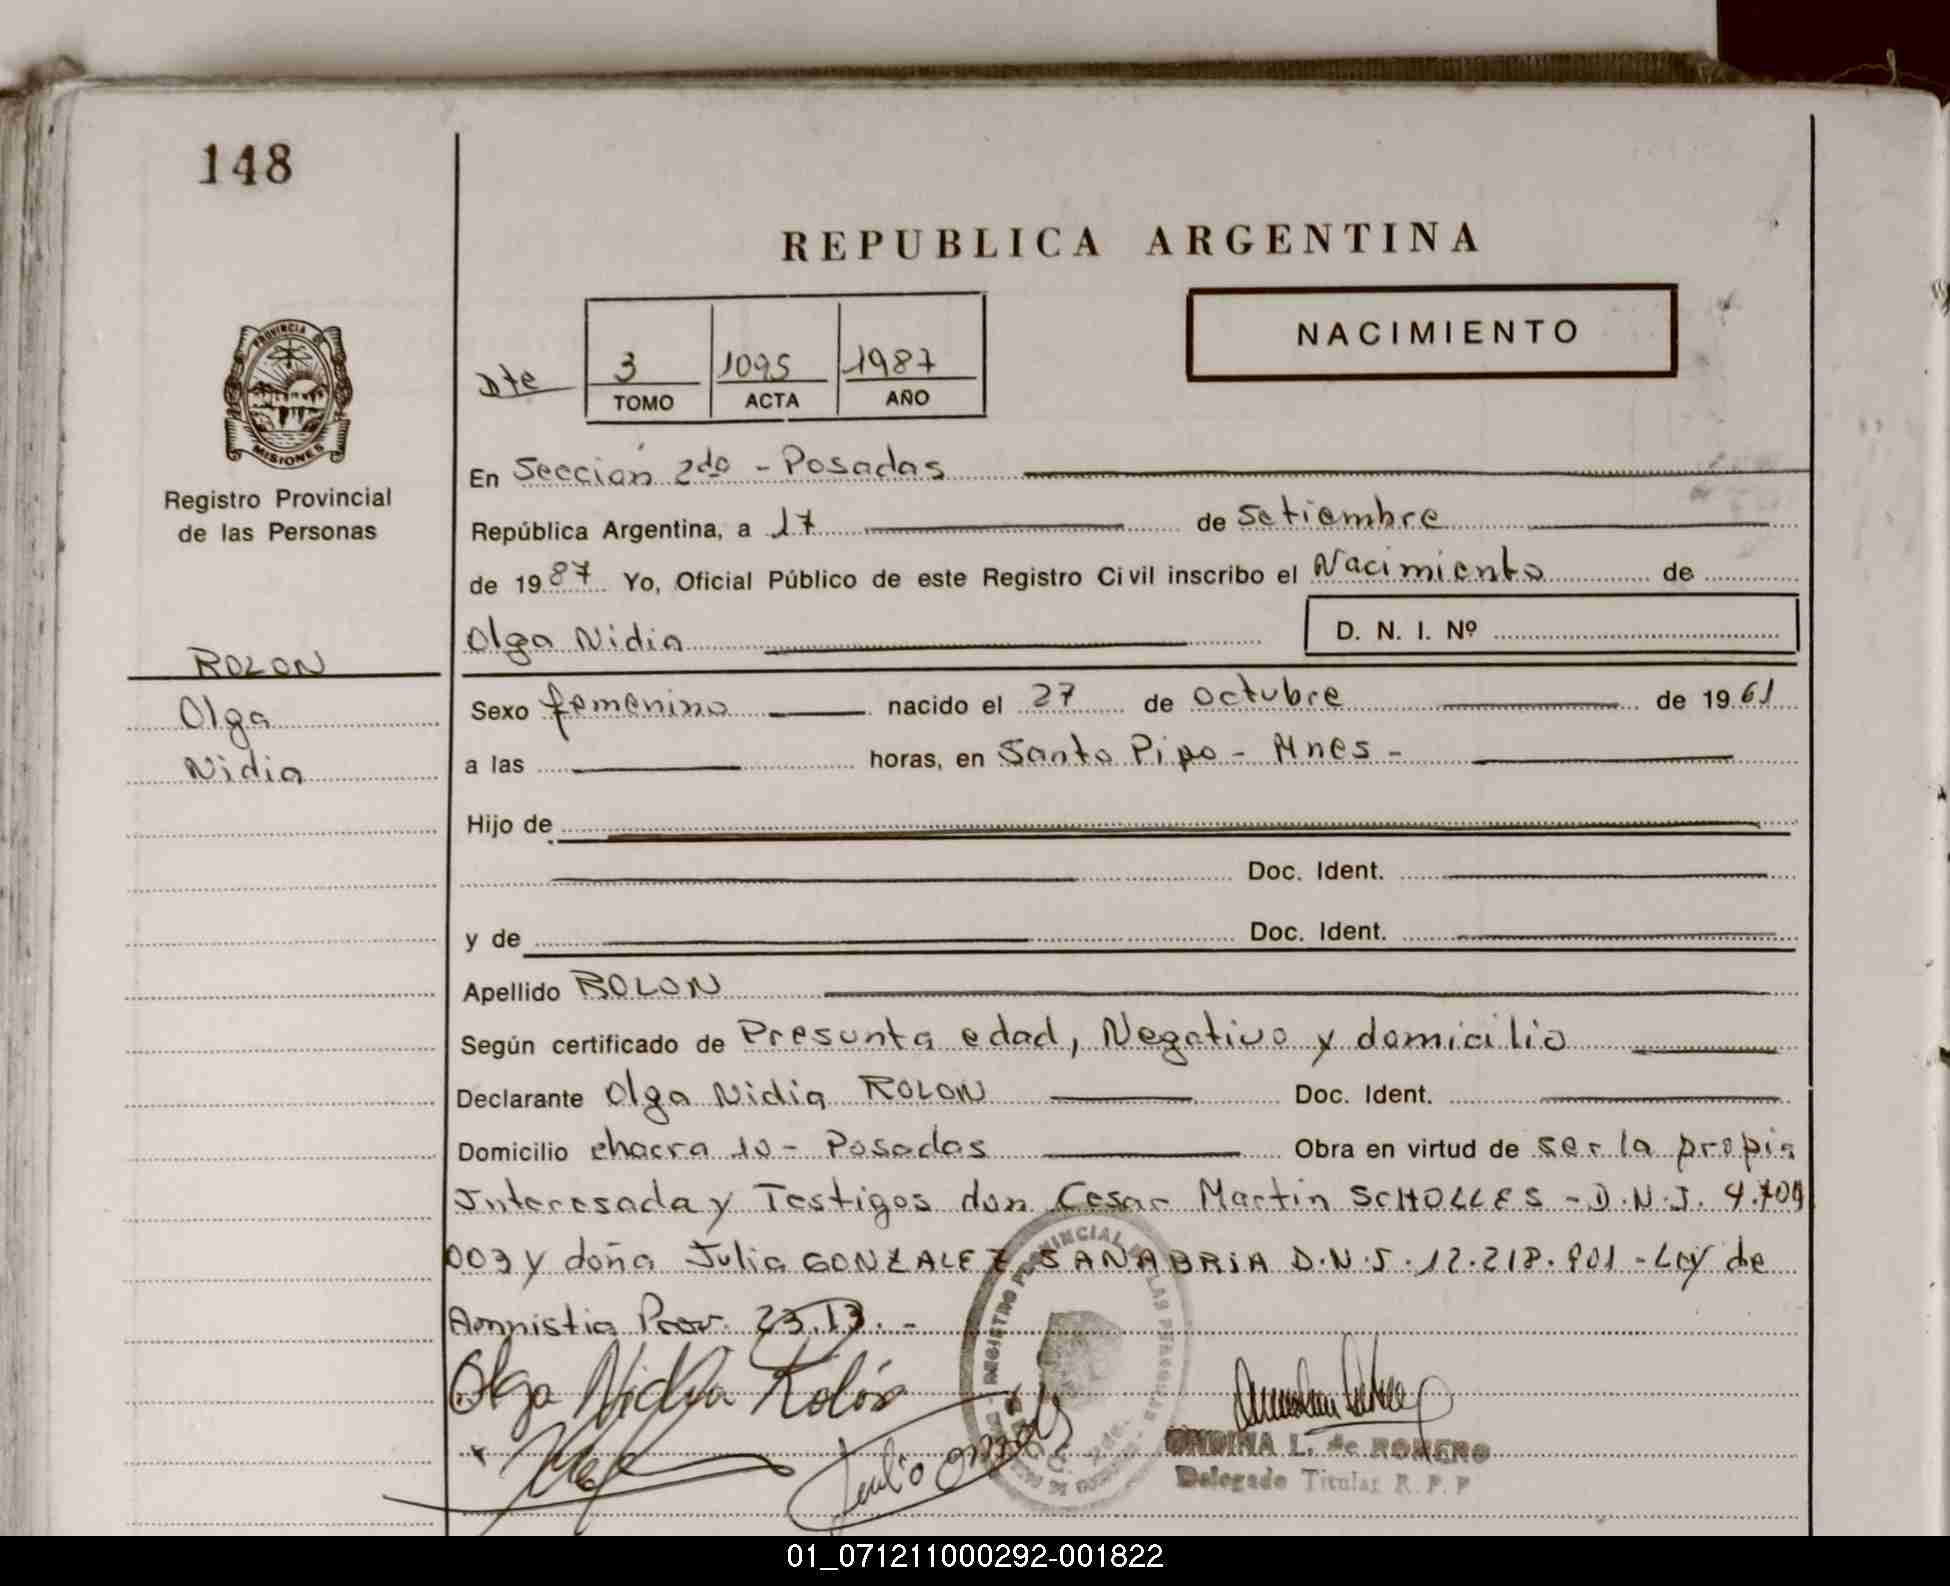 148
REPUBLICA ARGENTINA
NACIMIENTO
Dte 3 1095 1987
TOMO ACTA AÑO
PROVINCIA DE
MISIONES
Registro Provincial
de las Personas
En Sección 2do - Posadas
República Argentina, a 17 de Setiembre
de 1987 Yo, Oficial Público de este Registro Civil inscribo el Nacimiento de
Olga Nidia D. N. I. Nº
ROLON
Olga
Nidia
Sexo femenino nacido el 27 de Octubre de 1961
a las horas, en Santo Pipo - Mnes -
Hijo de
Doc. Ident.
y de Doc. Ident.
Apellido ROLON
Según certificado de Presunta edad, Negativo y domicilio
Declarante Olga Nidia ROLON Doc. Ident.
Domicilio chacra 10 - Posadas Obra en virtud de ser la propia
Interesada y Testigos don Cesar Martin SCHOLLES - D.N.I. 4.709
003 y doña Julia GONZALEZ SANABRIA D.N.I. 12.218.901 - Ley de
Amnistia Prov. 23.13. -
Olga Nidia Rolón
REGISTRO PROVINCIAL DE LAS PERSONAS
ONDINA L. de ROMERO
Delegado Titular R. P. P
01_071211000292-001822